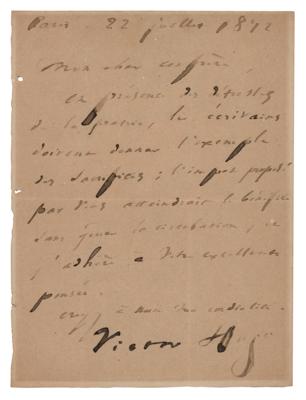 Paris - 22 juillet 1872
Mon cher confrère,
en présence des détresses
de la patrie, les écrivains
doivent donner l'exemple
des sacrifices ; l'impôt proposé
par vous atteindrait le bénéfice
sans gêner la circulation ; je
j'adhère à votre excellente
pensée.
à cordialité.
Victor Hugo